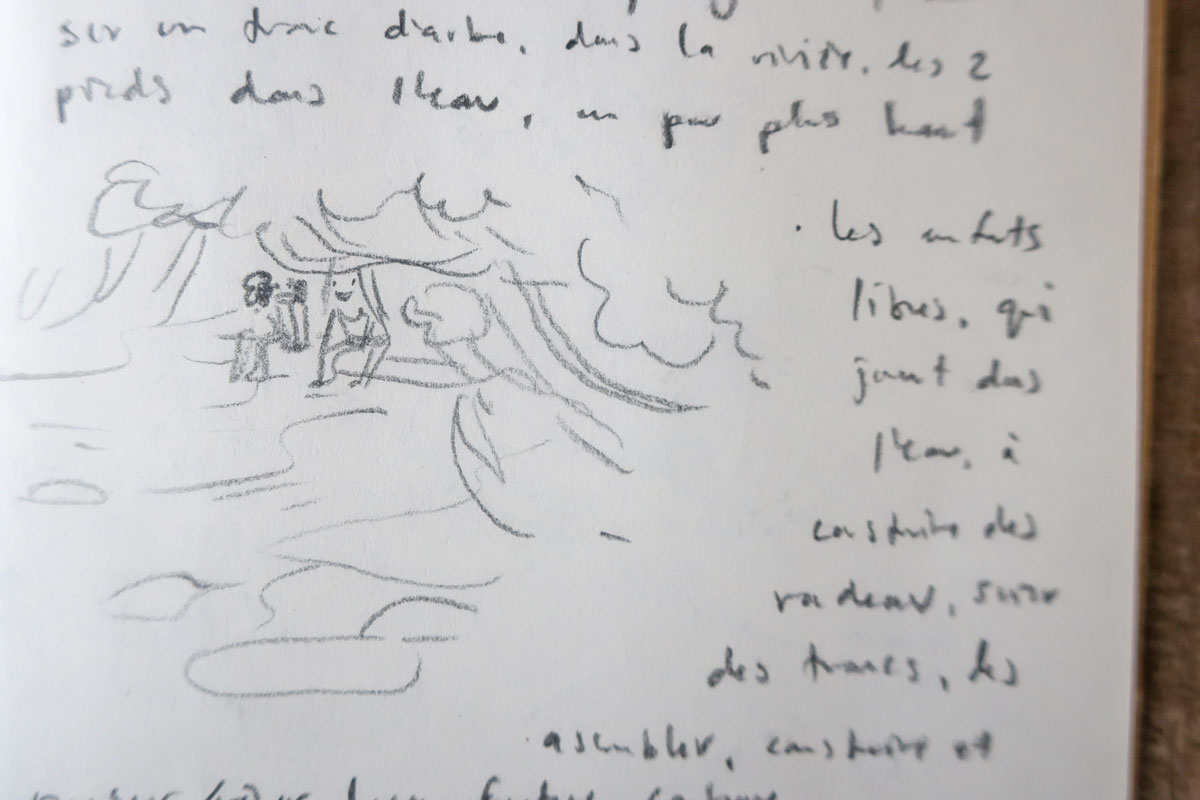 sur un tronc d'arbre, dans la rivière, les 2
pieds dans l'eau, un peu plus haut
. les enfants
libres, qui
jouent dans
l'eau, à
construire des
radeau, scier
des troncs, les
assembler, construire et
leur future cabane